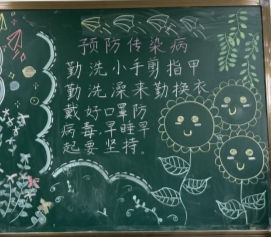 预防传染病
勤洗小手剪指甲
勤洗澡来勤换衣
戴好口罩防
病毒.早睡早
起要坚持.